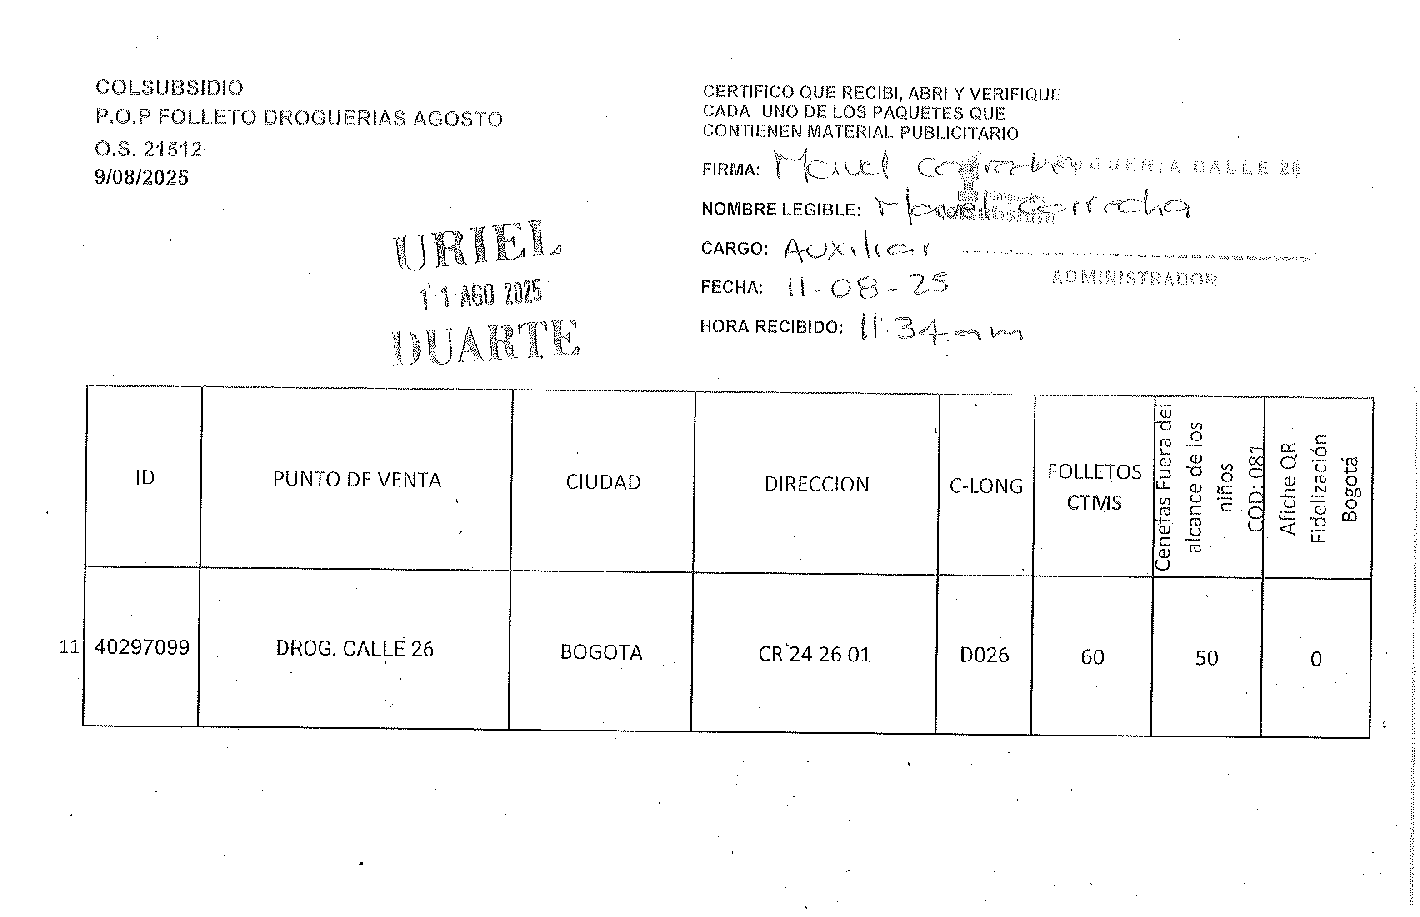 COLSUBSIDIO
P.O.P FOLLETO DROGUERIAS AGOSTO
O.S. 21512
9/08/2025
URIEL
11 AGO 2025
DUARTE
CERTIFICO QUE RECIBI, ABRI Y VERIFIQUE
CADA UNO DE LOS PAQUETES QUE
CONTIENEN MATERIAL PUBLICITARIO
FIRMA: CALLE 26
NOMBRE LEGIBLE:
CARGO: Auxiliar
ADMINISTRADOR
FECHA: 11-08-25
HORA RECIBIDO: 11:34 am
ID
PUNTO DE VENTA
CIUDAD
DIRECCION
C-LONG
FOLLETOS
CTMS
Cenefas Fuera del
alcance de los
niños
COD: 081
Afiche QR
Fidelización
Bogotá
11 40297099 DROG. CALLE 26 BOGOTA CR 24 26 01 D026 60 50 0